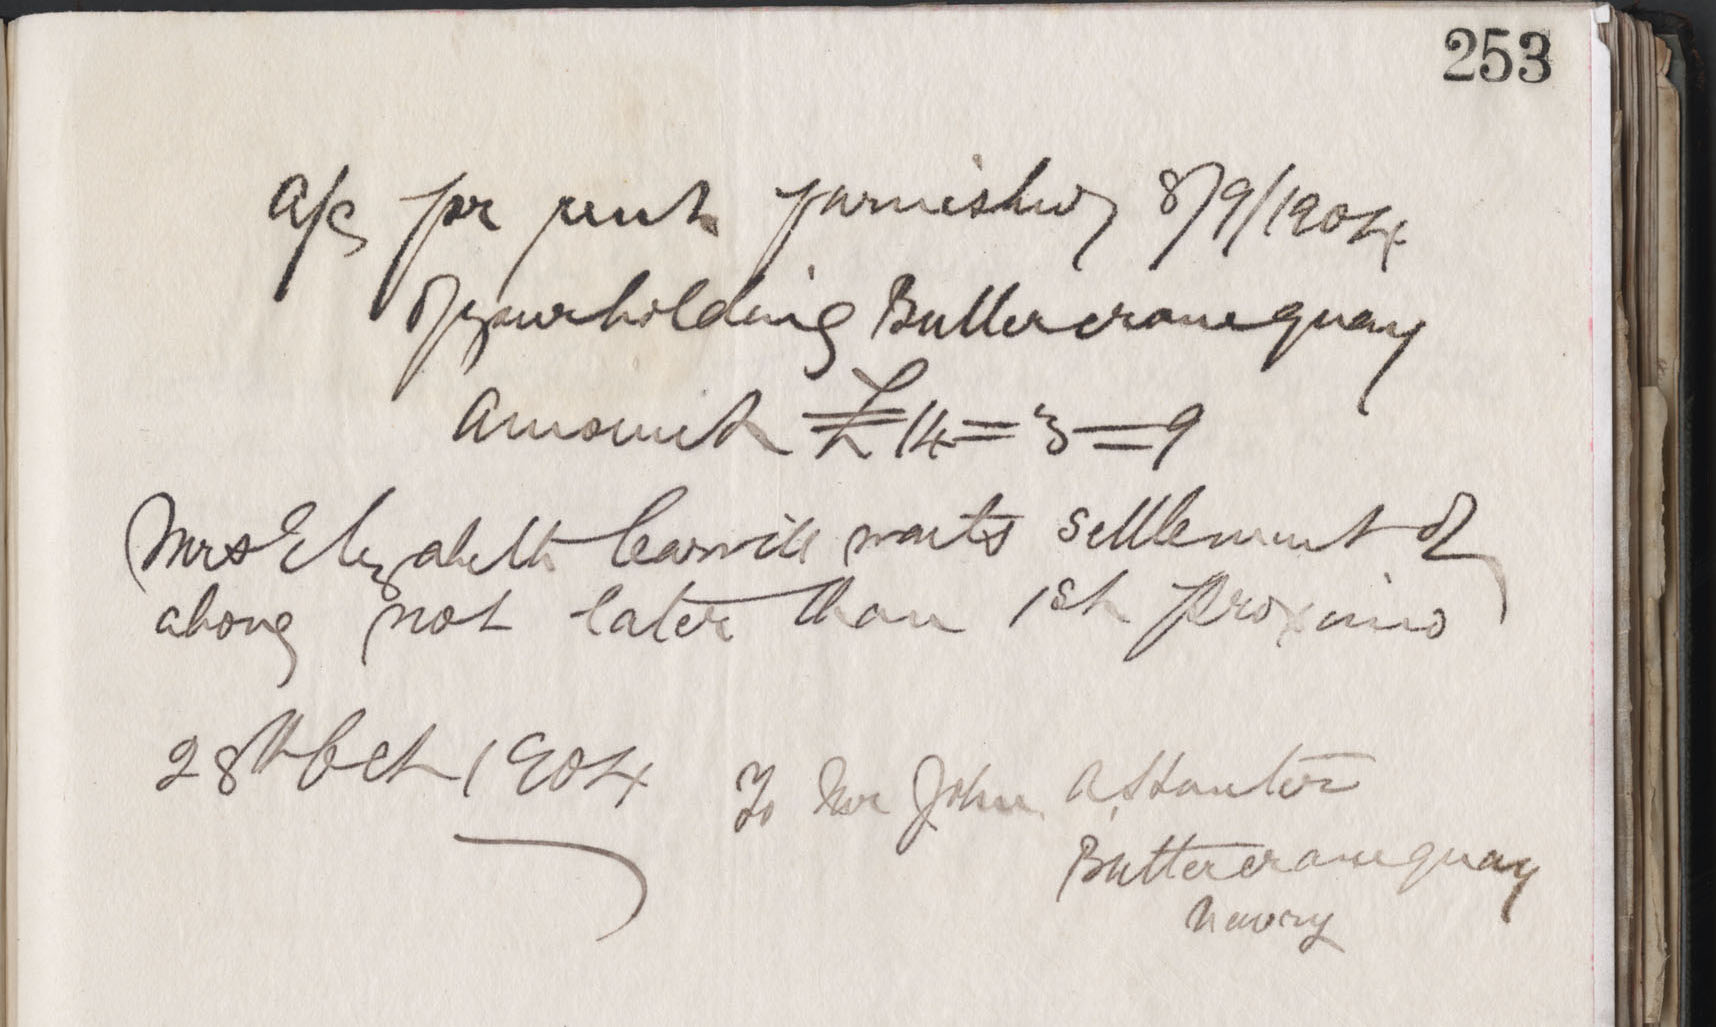 253
a/c for rent furnished 8/9/1904
Of your holding Buttercrane quay
Amount £14=3=9
Mrs Elizabeth wants settlement of
above not later than 1st Proximo
28th Oct 1904
To Mr John A Hunter
Buttercrane quay
Newry